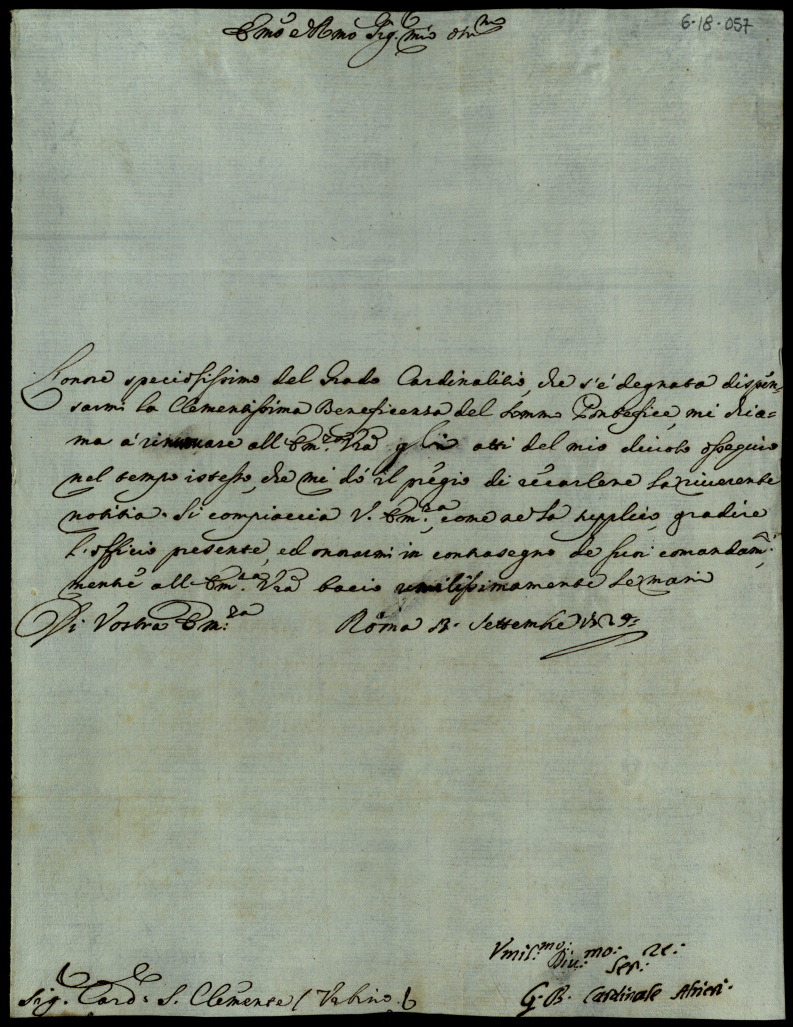 6-18-057
Emo e Rmo Sig. mio Oss.mo
L'onore speciosissimo del Grado Cardinalitio, che s'é degnata dispen,
sarmi la Clementissima Beneficenza del Sommo Pontefice, mi chia=
ma à rinovare all' Em.za Vra gli atti del mio divoto ossequio
nel tempo istesso, che mi dà il pregio di recarlene la riverente
notitia. Si compiaccia V. Em.za, come ne la supplico, gradire
l'officio presente, ed onorarmi in contrasegno de suoi comandam.ti
mentre all' Em.za Vra bacio umilissimamente le mani
Di Vostra Em:za Roma Settembre
Vmil:mo: Div: mo: re:
Ser:
G. B. Cardinale Altieri.
Sig. Card: S. Clemente / Urbino